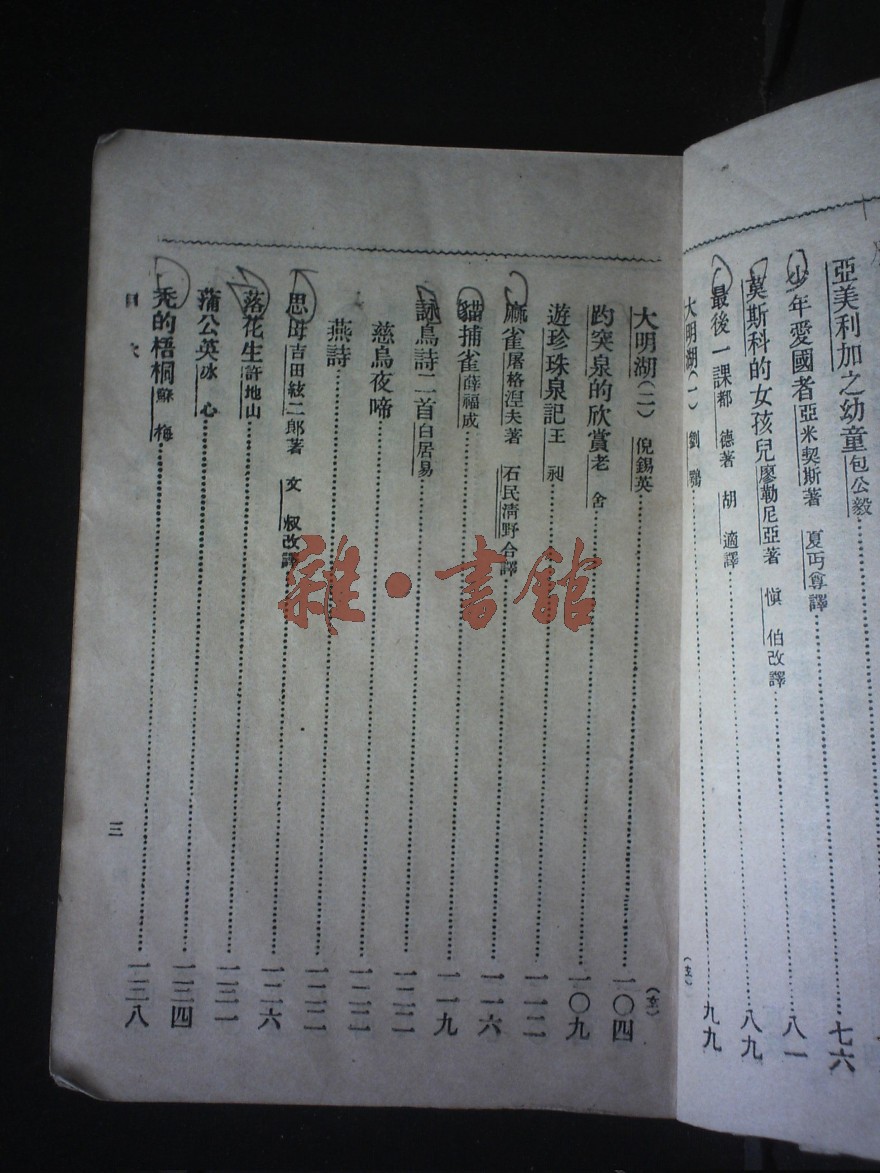 亞美利加之幼童 包公毅 七六
少年愛國者 亞米契斯著 夏丏尊譯 八一
莫斯科的女孩兒 廖勒尼亞著 愼伯改譯 八九
最後一課 都德著 胡適譯 九九
大明湖(一) 劉鶚
(文)
大明湖(二) 倪錫英 一〇四
(文)
趵突泉的欣賞 老舍 一〇九
遊珍珠泉記 王昶 一一二
麻雀 屠格涅夫著 石民清野合譯 一一六
貓捕雀 薛福成 一一九
詠鳥詩二首 白居易 一二二
慈烏夜啼 一二二
燕詩 一二二
思母 吉田絃二郎著 文叔改譯 一二六
落花生 許地山 一三一
蒲公英 冰心 一三四
禿的梧桐 蘇梅 一三八
目次
三
雜·書館